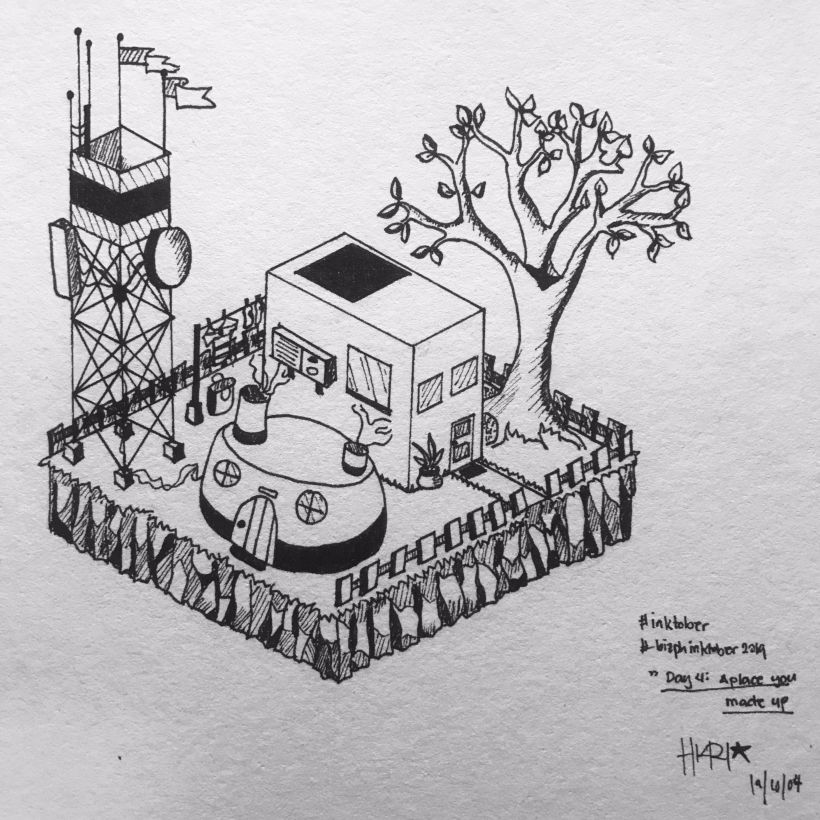 #inktober
#bizphinktober 2019
" Day 4: A place you
made up
HKRI★
19/10/04